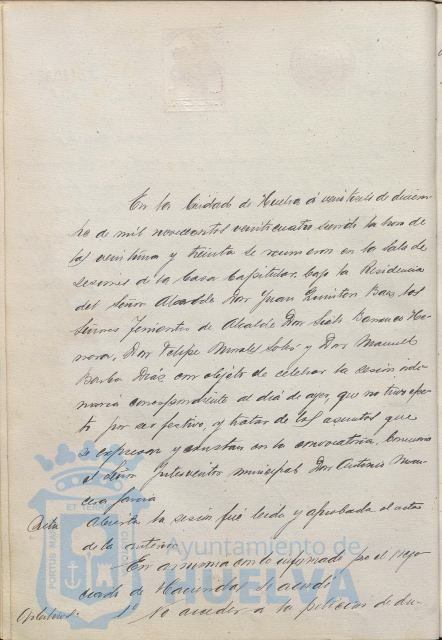 En la Ciudad de Huelva á veintiseis de diciem-
bre de mil novecientos veinticuatro siendo la hora de
las veintiuna y treinta se reunieron en la Sala de
sesiones de la Casa Capitular, bajo la Presidencia
del Señor Alcalde Don Juan Quintero Baez los
Señores Tenientes de Alcalde Don
Don Felipe Morales y Don Manuel
Barba Diaz con objeto de celebrar la sesión ordi-
naria correspondiente al dia de ayer, que no tuvo efec-
to por ser festivo, y tratar de los asuntos que
se expresan y constan en la convocatoria. Concurre
el Señor Interventor municipal Don Antonio
Garcia
Acta Abierta la sesión fué leida y aprobada el acta
de la anterior.
En armonia con lo informado por el nego-
ciado de Hacienda, se acordó:
1º No acceder á la peticion de
Ayuntamiento de
HUELVA